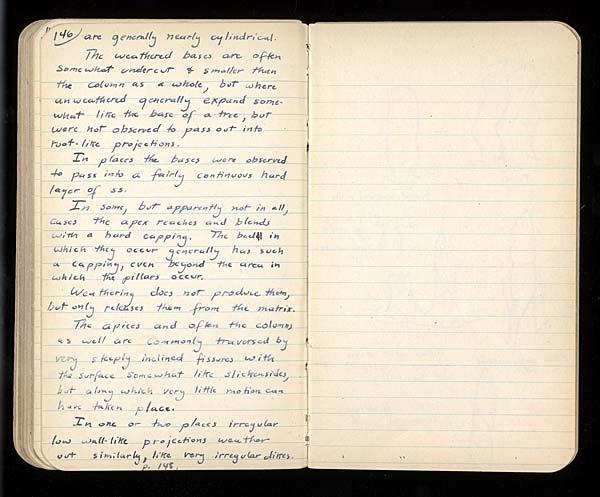 146 are generally nearly cylindrical.
The weathered bases are often
somewhat undercut & smaller than
the column as a whole, but where
unweathered generally expand some-
what like the base of a tree, but
were not observed to pass out into
root-like projections.
In places the bases were observed
to pass into a fairly continuous hard
layer of ss.
In some, but apparently not in all,
cases the apex reaches and blends
with a hard capping. The bed in
which they occur generally has such
a capping, even beyond the area in
which the pillars occur.
Weathering does not produce them,
but only releases them from the matrix.
The apices and often the columns
as well are commonly traversed by
very steeply inclined fissures with
the surface somewhat like slickensides,
but along which very little motion can
have taken place.
In one or two places irregular
low wall-like projections weather
out similarly, like very irregular dikes.
p. 148.